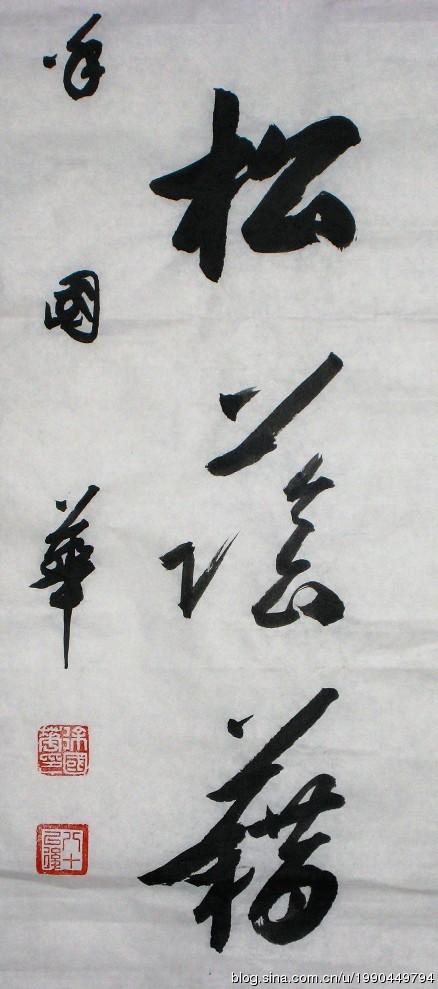 松蔭
徐國華
徐國華印
八十
blog.sina.com.cn/u/1990449794